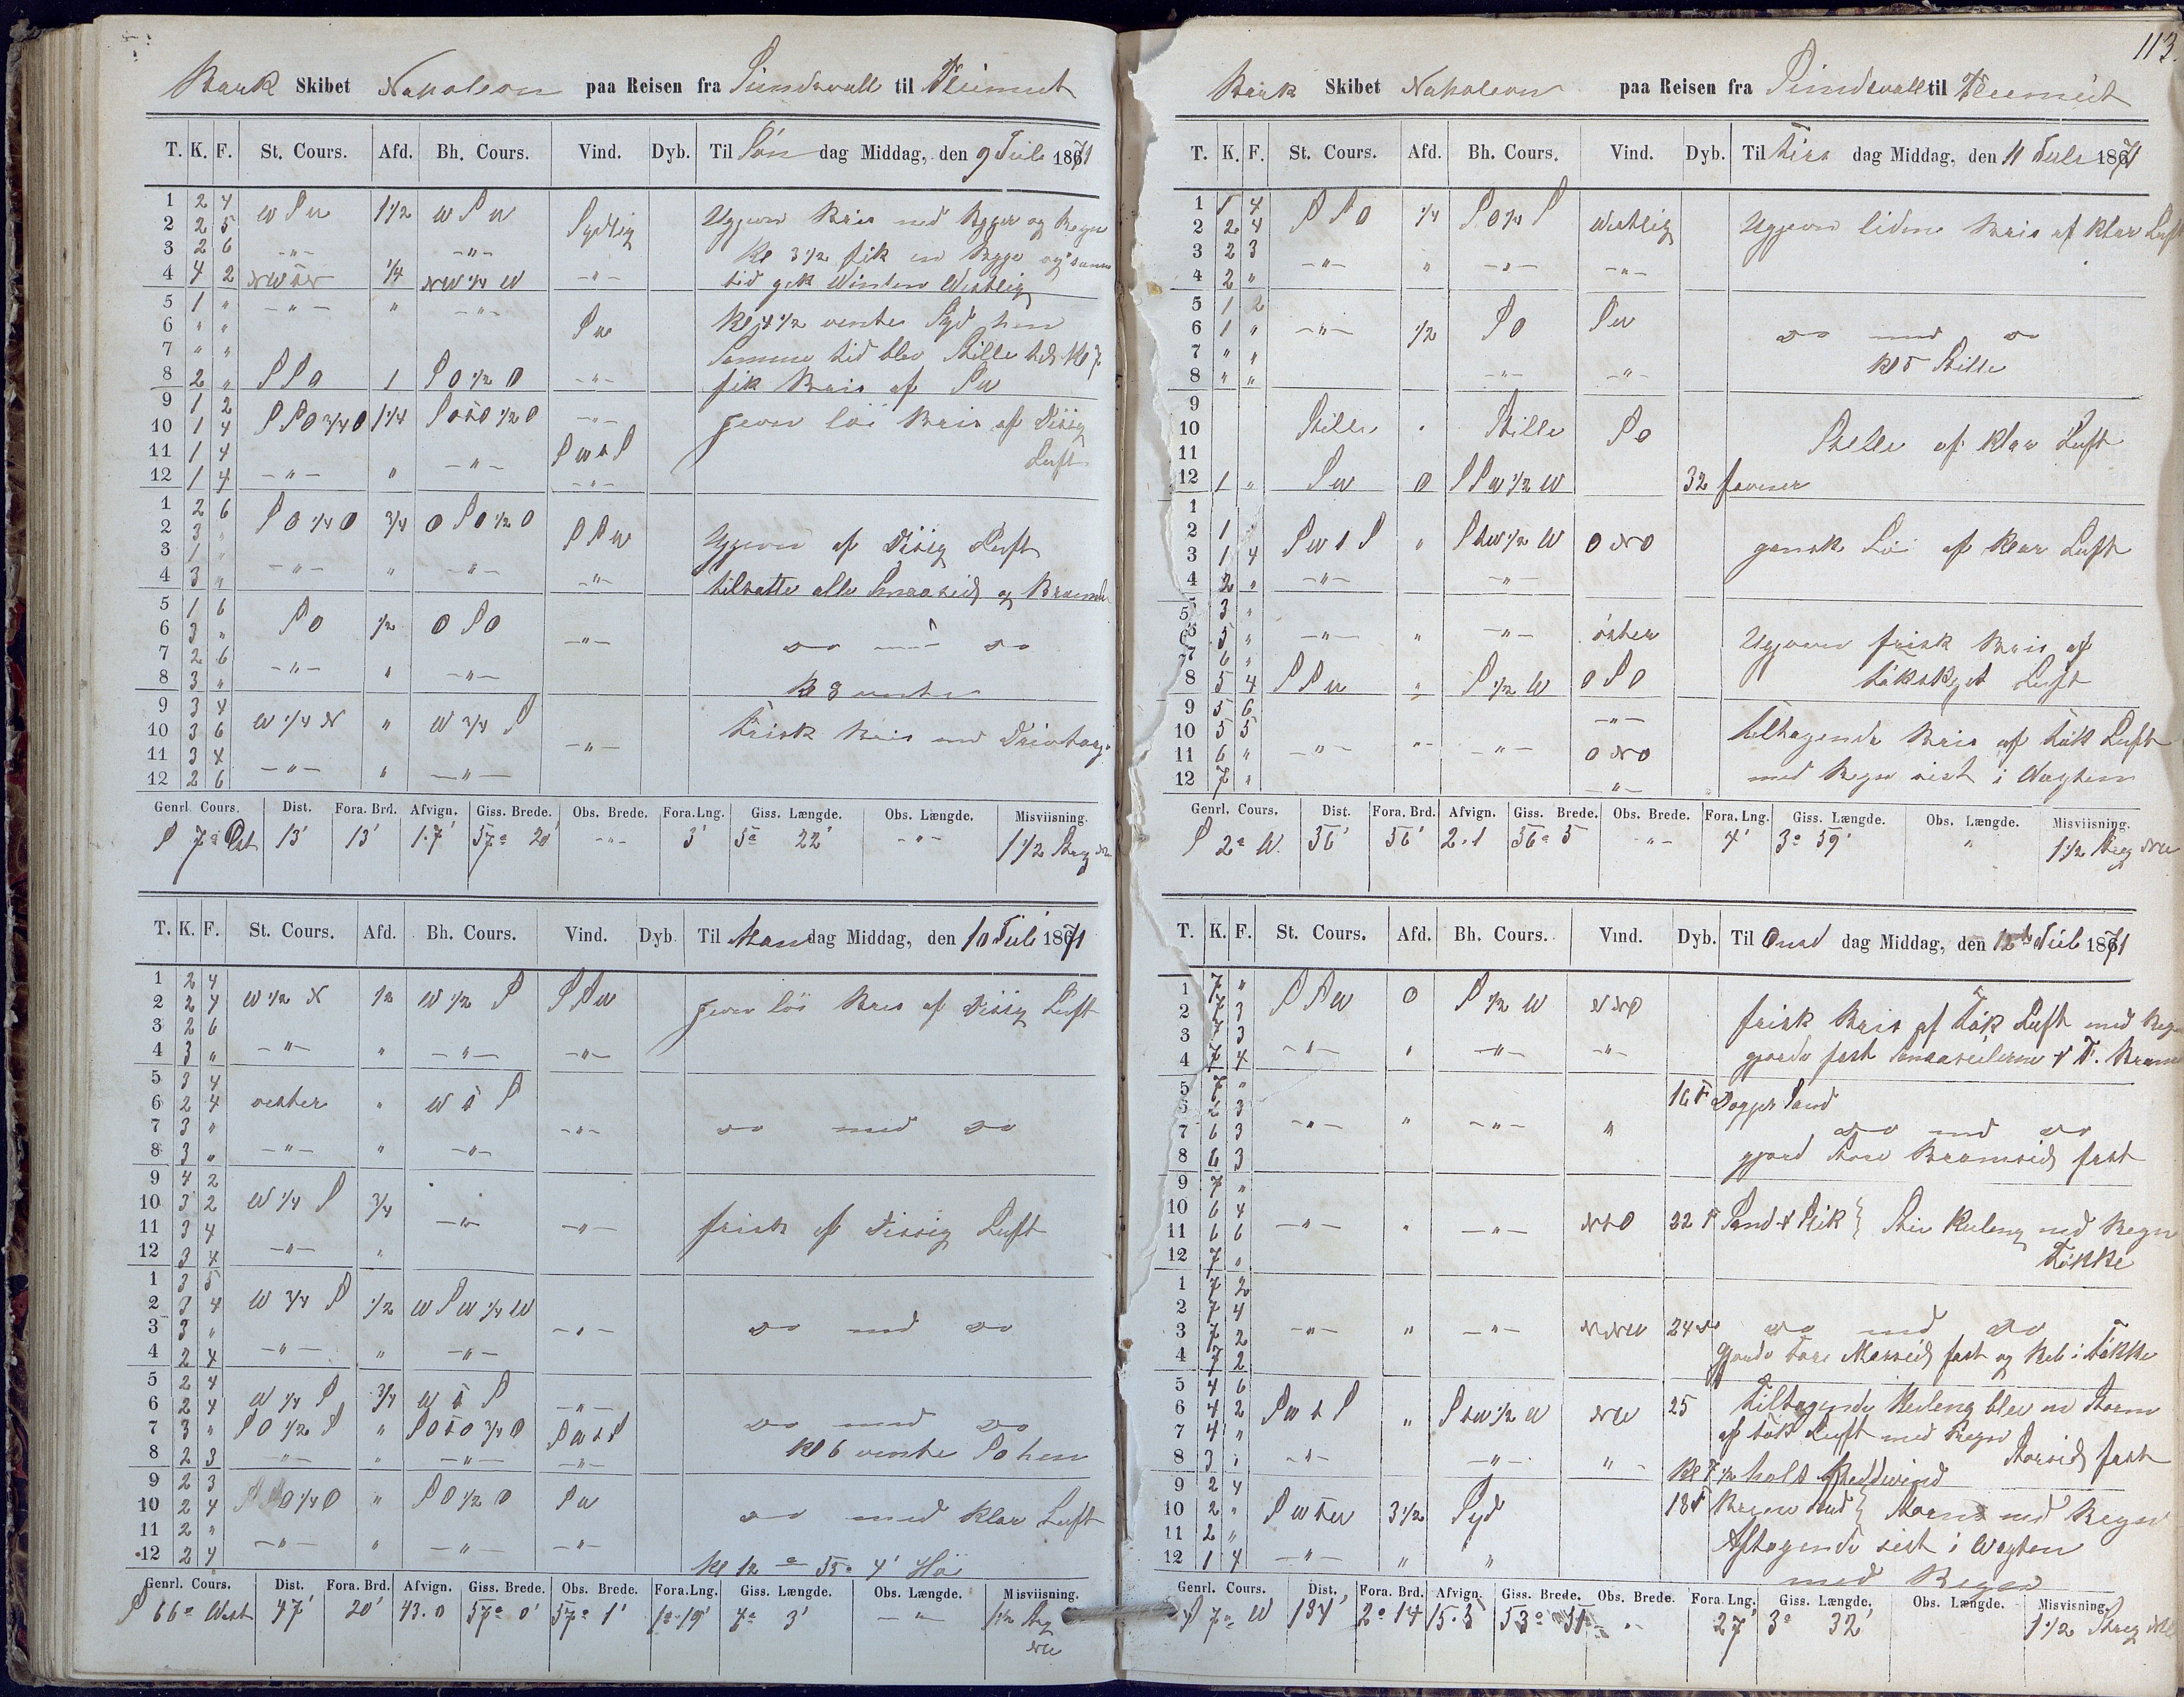 Bark Skibet Napoleon paa Reisen fra Sundsvall til Pleimut
T. K. F. St. Cours. Afd. Bh. Cours. Vind. Dyb. Til Søn dag Middag, den 9 Juli 1871
1 2 4 W S W 1 1/2 W S W Sydlig Ugjevn Bris med Byger og Regn
2 2 5
3 2 6 -"- -"- Kl 3 1/2 fik en Byge og samme
4 4 2 1/4 NW 1/4 W -"- tid gik Vinden Vestlig
5 1 " -"- " -"- Kl 4 1/2 vente Syd hen
6 " " S W
7 " " Samme tid blev Stille til Kl 7
8 2 " S S O 1 S O 1/2 O -"- fik Bris af S W
9 1 2
10 1 4 S S O 3/4 O 1 1/4 S O t O 1/2 O -"- jevn löi Bris af Disig
11 1 4 S W t S Luft
12 1 4 -"- " -"- -"-
1 2 6
2 3 " S O 1/4 O 3/4 O S O 1/2 O S S W Ugjevn af Disig Luft
3 1 "
4 3 " -"- " -"- -"- tilsatte alle Smaaseil og
5 1 6
6 3 " S O 1/2 O S O -"-
7 2 6 do med do
8 3 " -"- " -"- Kl 8 vente
9 3 4
10 3 6 W 1/4 N " W 3/4 S -"- Frisk Bris med
11 3 4
12 2 6 -"- " -"-
Genrl. Cours. Dist. Fora. Brd. Afvign. Giss. Brede. Obs. Brede. Fora.Lng. Giss. Længde. Obs. Længde. Misviisning.
S 7° Ost 13' 13' 1.7' 57° 20' -"- 3' 5° 22' -"- 1 1/2 Streg NW
T. K. F. St. Cours. Afd. Bh. Cours. Vind. Dyb. Til Man dag Middag, den 10 Juli 1871
1 2 4
2 2 4 W 1/2 N 1/2 W 1/2 S S S W jevn löi Bris af Disig Luft
3 2 6
4 3 " -"- " -"- -"-
5 3 4
6 2 4 vester " W t S
7 3 " -"- do med do
8 3 " -"- " -"-
9 4 2
10 3 2 W 1/4 S 3/4 -"- -"- frisk af Disig Luft
11 3 4
12 3 4 -"- "
1 3 5
2 3 4 W 3/4 S 1/2 W S W 1/4 W
3 3 " -"- do med do
4 2 4 -"- " -"-
5 2 4
6 2 4 W 1/4 S 3/4 W t S -"-
7 3 " S O 1/2 S " S O t O 3/4 O S W t S do med do
8 2 3 -"- " -"- -"- Kl 6 vente S O hen
9 2 3
10 2 4 S S O 1/4 O " S O 1/2 O S W do med klar Luft
11 2 "
12 2 4 -"- " -"- -"-
Genrl. Cours. Dist. Fora. Brd. Afvign. Giss. Brede. Obs. Brede. Fora.Lng. Giss. Længde. Obs. Længde. Misviisning.
S 66° West 47' 20' 43.0 57° 0' 57° 1' 1° 19' 4° 3' -"- 1 1/2 Streg NW
113.
Bark Skibet Napoleon paa Reisen fra Sundsvall til Pleimut
T. K. F. St. Cours. Afd. Bh. Cours. Vind. Dyb. Til Tirs dag Middag, den 11 Juli 1871
1 1 4
2 2 4 S S O 1/4 S O 1/4 S Westlig Ugjevn liden Bris af klar Luft
3 2 3
4 2 " -"- " -"- -"-
5 1 2
6 1 " -"- 1/2 S O S W do med do
7 " "
8 " " -"- -"- Kl 5 Stille
9
10 Stille " Stille S O Stille af klar Luft
11
12 1 " S W 0 S S W 1/2 W 32 favner
1
2 1 " S W t S " S t W 1/2 W O N O gansk Löi af klar Luft
3 1 4
4 2 " -"- -"-
5 3 "
6 5 " -"- " -"- öster Ugjevn frisk Bris af
7 6 "
8 5 4 S S W " S 1/2 W O S O tökskyet Luft
9 5 6 -"-
10 5 5 tiltagende Bris af tök Luft
11 6 " -"- " -"- O N O
12 7 " -"- med Regn sist i Vagten
Genrl. Cours. Dist. Fora. Brd. Afvign. Giss. Brede. Obs. Brede. Fora. Lng. Giss. Længde. Obs. Længde. Misviisning.
S 2° W. 56' 56' 2.1 56° 5 -"- 4' 3° 59' " 1 1/2 Streg NW
T. K. F. St. Cours. Afd. Bh. Cours. Vind. Dyb. Til Onsd dag Middag, den 12te Juli 1871
1 7 "
2 7 3 S S W 0 S 1/2 W N N O frisk Bris af tök Luft med Regn
3 7 3
4 7 4 -"- " -"- -"- gjorde fast Smaaseilerne & F. Bram
5 7 " 16 F Dogger Sand
6 6 3
7 6 3 -"- " -"- " do med do
8 6 3 gjord Store Bramseil fast
9 7 "
10 6 4 N t O 22 F Sand & Slik } Stiv Kuling med Regn
11 6 6 -"- " -"-
12 7 " Tökke
1 7 2
2 7 4
3 7 2 -"- " -"- N N W 24 do do med do
4 7 2 gjorde Store Mersseil fast og Reb i Tökke
5 4 6
6 4 2 S W t S " S t W 1/2 W N W 25 tiltagende Kuling blev en Storm
7 4 " af tök Luft med Regn
8 3 " -"- -"- " Storseil fast
9 2 4 Kl 7 1/2 halt
10 2 " 3 1/2 Syd 18 F Storm med Regn
11 2 " Aftagende sist i Vagten
12 1 4 -"- " " med Regn
Genrl. Cours. Dist. Fora. Brd. Afvign. Giss. Brede. Obs. Brede. Fora. Lng. Giss. Længde. Obs. Længde. Misvisning.
S 7° W 134' 2° 14 15.5 53° 51 -"- 27' 3° 32' 1 1/2 Streg NW